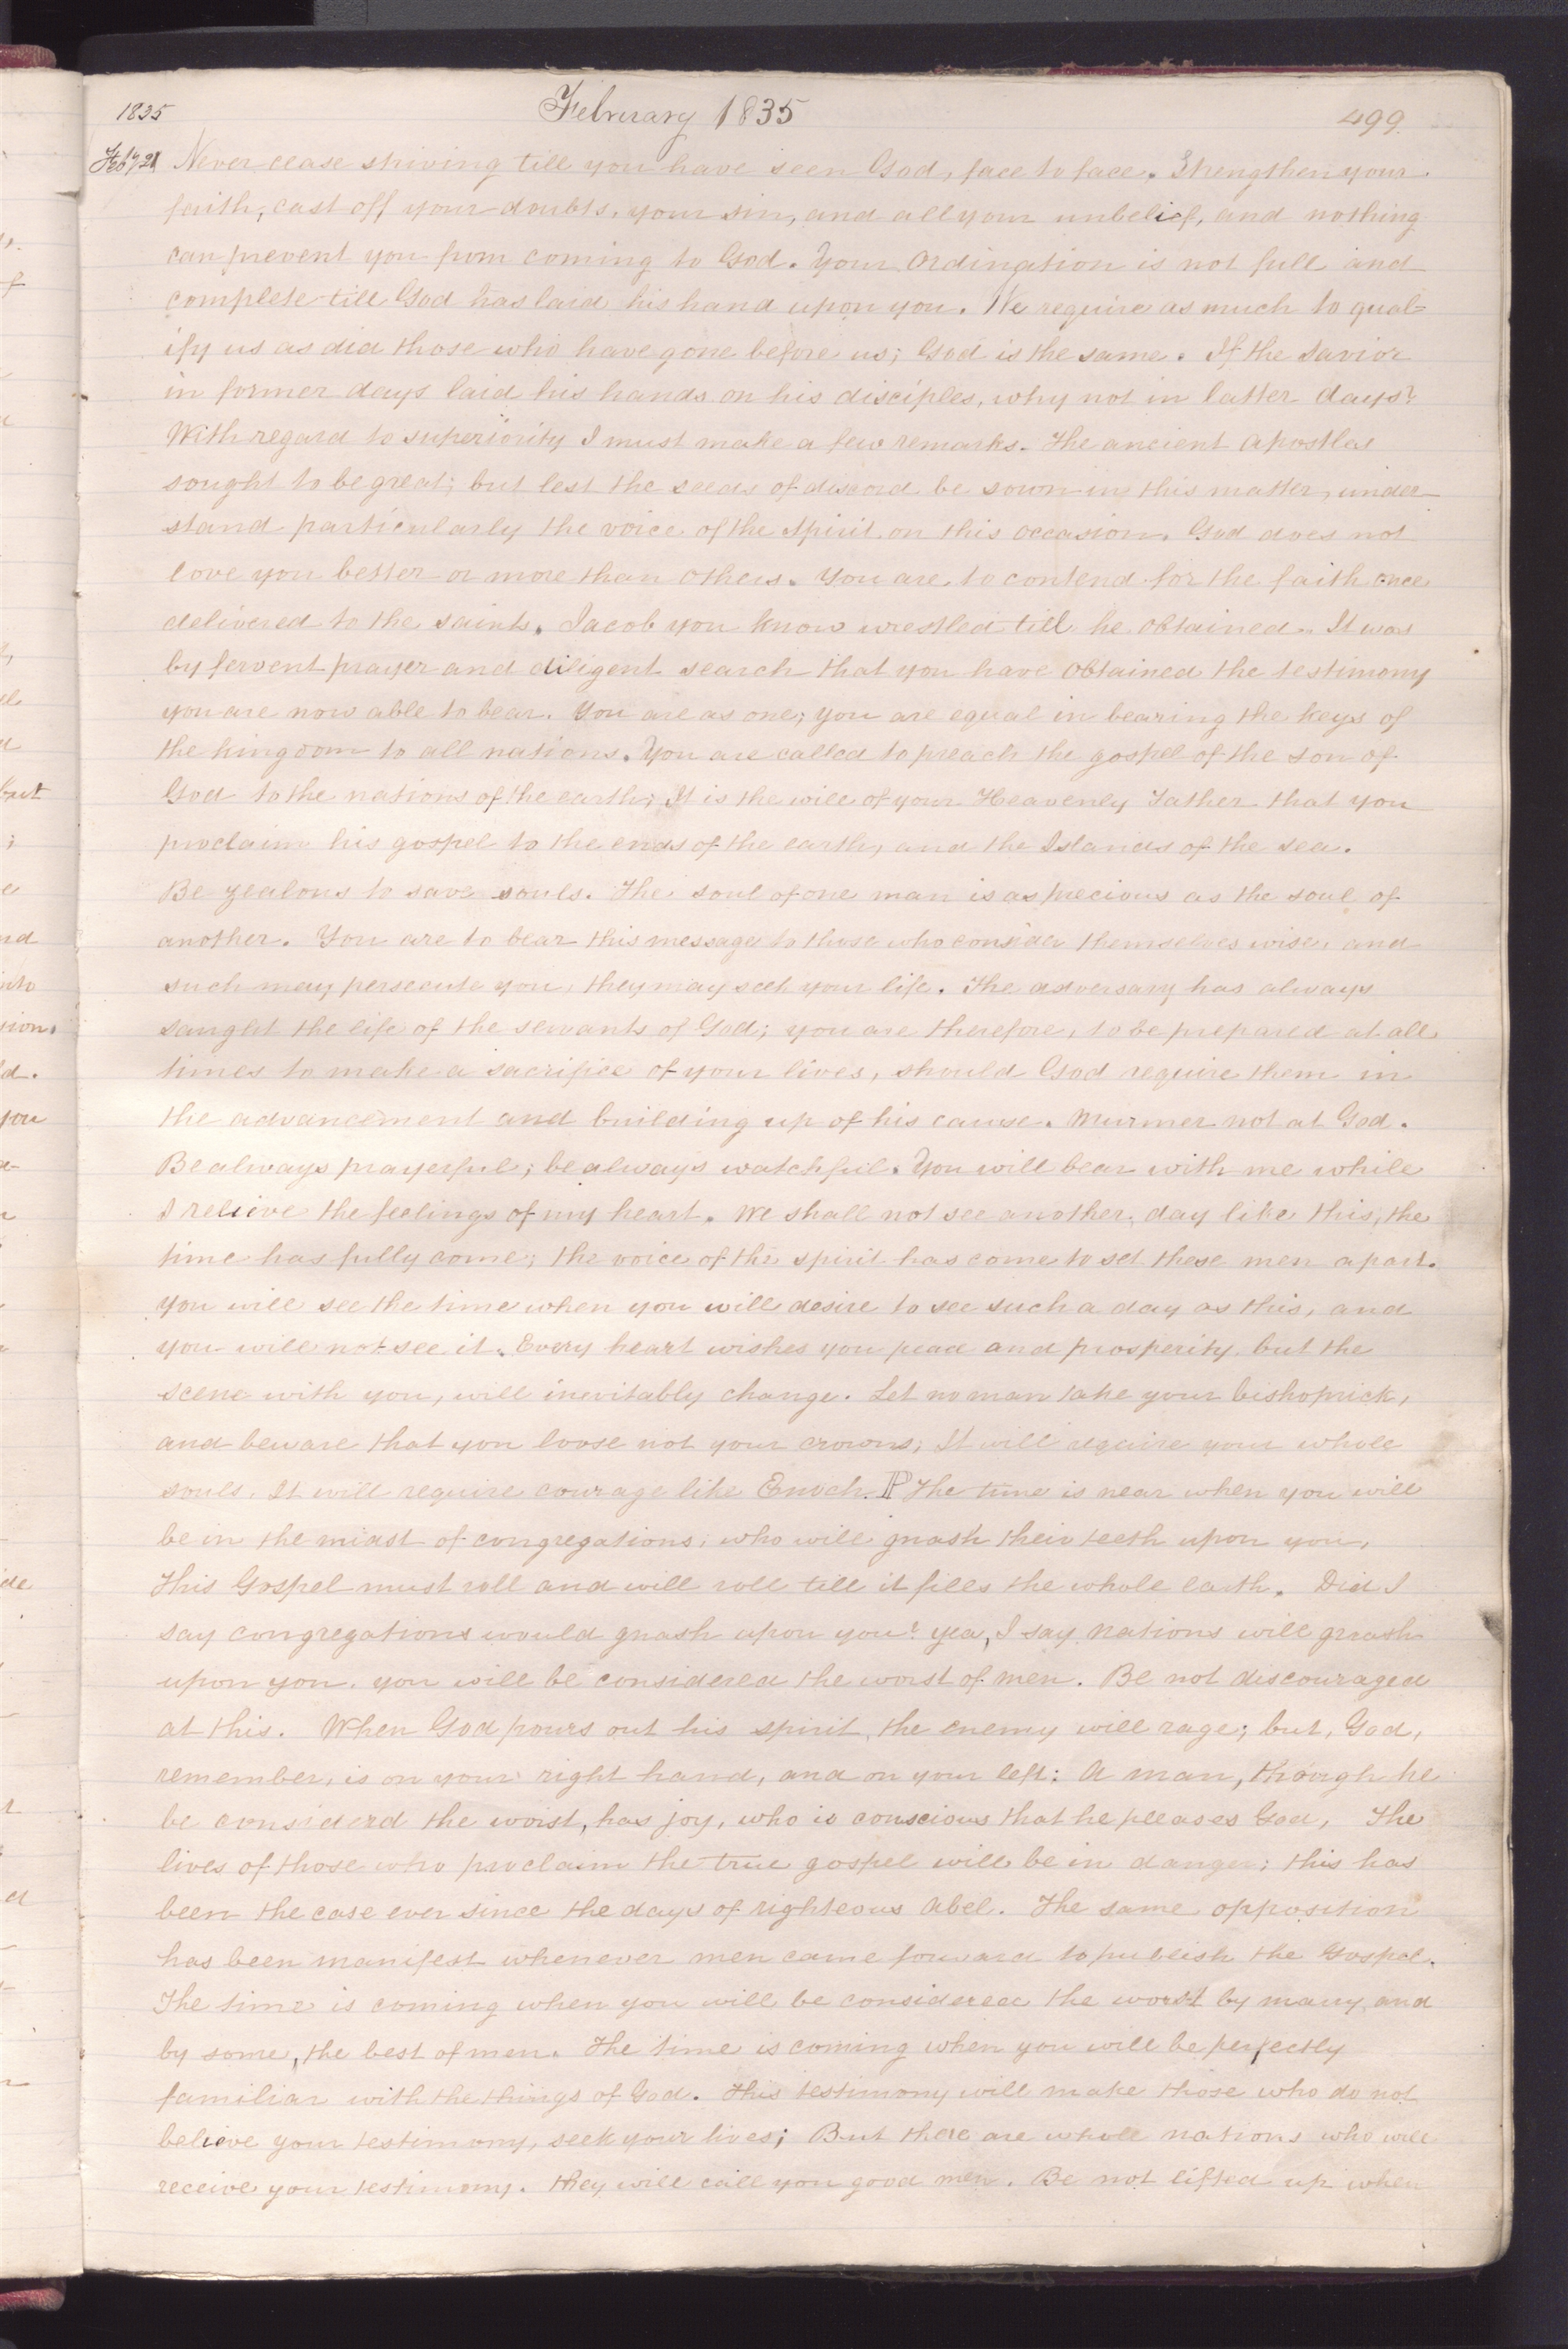 1835
February 1835
499.
Feby 21 Never cease striving till you have seen God, face to face. Strengthen your
faith, cast off your doubts, your sin, and all your unbelief, and nothing
can prevent you from coming to God. Your Ordination is not full and
complete till God has laid his hand upon you. We require as much to qual=
ify us as did those who have gone before us; God is the same. If the Savior
in former days laid his hands on his disciples, why not in latter days?
With regard to superiority I must make a few remarks. The ancient Apostles
sought to be great; but lest the seeds of discord be sown in this matter, under-
stand particularly the voice of the Spirit on this occasion. God does not
love you better or more than others. You are to contend for the faith once
delivered to the saints. Jacob you know wrestled till he obtained. It was
by fervent prayer and diligent search that you have obtained the testimony
you are now able to bear. You are as one; you are equal in bearing the keys of
the kingdom to all nations. You are called to preach the gospel of the Son of
God to the nations of the earth; It is the will of your Heavenly Father that you
proclaim his gospel to the ends of the earth, and the Islands of the sea.
Be zealous to save souls. The soul of one man is as precious as the soul of
another. You are to bear this message to those who consider themselves wise, and
such may persecute you, they may seek your life. The adversary has always
saught the life of the servants of God; you are therefore, to be prepared at all
times to make a sacrifice of your lives, should God require them in
the advancement and building up of his cause. Murmer not at God.
Be always prayerful; be always watchful. You will bear with me while
I relieve the feelings of my heart. We shall not see another day like this, the
time has fully come; the voice of the spirit has come to set these men apart.
You will see the time when you will desire to see such a day as this, and
you will not see it. Every heart wishes you peace and prosperity, but the
scene with you, will inevitably change. Let no man take your bishoprick,
and beware that you loose not your crowns; It will require your whole
souls, It will require courage like Enoch. P The time is near when you will
be in the midst of congregations; who will gnash their teeth upon you,
This Gospel must roll and will roll till it fills the whole earth. Did I
say congregations would gnash upon you? yea, I say nations will gnash
upon you, you will be considered the worst of men. Be not discouraged
at this. When God pours out his spirit, the enemy will rage; but, God,
remember, is on your right hand, and on your left: A man, though he
be considerd the worst, has joy, who is conscious that he pleases God, The
lives of those who proclaim the true gospel will be in danger; this has
been the case ever since the days of righteous Abel. The same opposition
has been manifest whenever men came forward to publish the Gospel.
The time is coming when you will be considered the worst by many, and
by some, the best of men. The time is coming when you will be perfectly
familiar with the things of God. This testimony will make those who do not
believe your testimony, seek your lives; But there are whole nations who will
receive your testimony. They will call you good men. Be not lifted up when